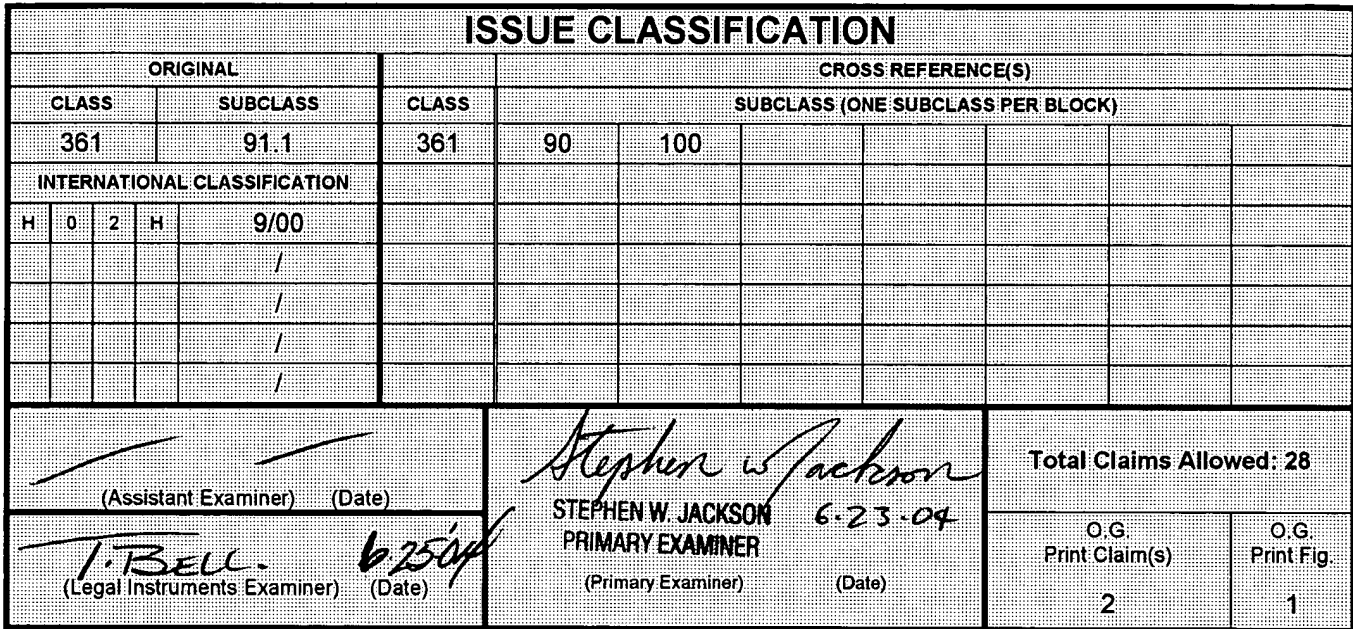 ISSUE CLASSIFICATION
ORIGINAL CROSS REFERENCE(S)
CLASS SUBCLASS CLASS SUBCLASS (ONE SUBCLASS PER BLOCK)
361 91.1 361 90 100
INTERNATIONAL CLASSIFICATION
H 0 2 H 9/00
/
/
/
/
(Assistant Examiner) (Date)
T. BELL. 6.25.04
(Legal Instruments Examiner) (Date)
Stephen W Jackson
STEPHEN W. JACKSON 6-23-04
PRIMARY EXAMINER
(Primary Examiner) (Date)
Total Claims Allowed: 28
O.G. O.G.
Print Claim(s) Print Fig.
2 1